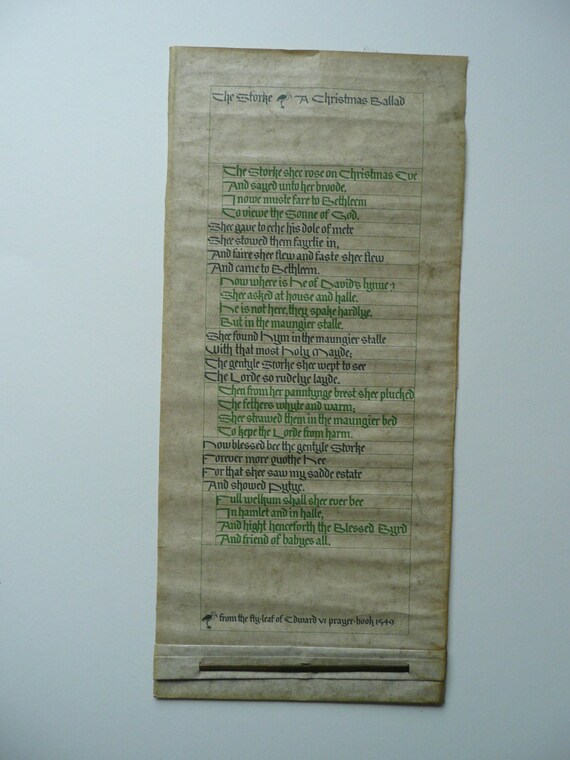 The Storke A Christmas Ballad
The Storke shee rose on Christmas Eve
And sayed unto her broode,
I nowe muste fare to Bethleem
To viewe the Sonne of God.
Shee gave to eche his dole of mete
Shee stowed them fayrlie in,
And faire shee flew and faste shee flew
And came to Bethleem.
Now where is He of David's lynne?
Shee asked at house and halle.
He is not here, they spake hardlye,
But in the maungier stalle.
Shee found Hym in the maungier stalle
With that most Holy Mayde;
The gentyle Storke shee wept to see
The Lorde so rudelye layde.
Then from her panntynge brest shee plucked
The fethers whyte and warm;
Shee strawed them in the maungier bed
To kepe the Lorde from harm.
Now blessed bee the gentyle Storke
Forever more quothe Hee
For that shee saw my sadde estate
And showed Pytye.
Full welkum shall shee ever bee
In hamlet and in halle,
And hight henceforth the Blessed Byrd
And friend of babyes all.
from the fly-leaf of Edward VI prayer-book 1549